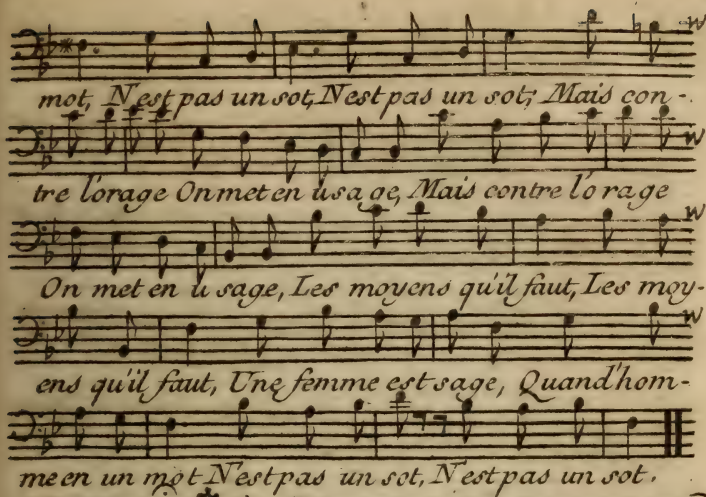 mot, N'est pas un sot, N'est pas un sot; Mais con-
tre l'orage On met en usage, Mais contre l'orage
On met en usage, Les moyens qu'il faut, Les moy-
ens qu'il faut, Une femme est sage, Quand'hom-
me en un mot N'est pas un sot, N'est pas un sot.